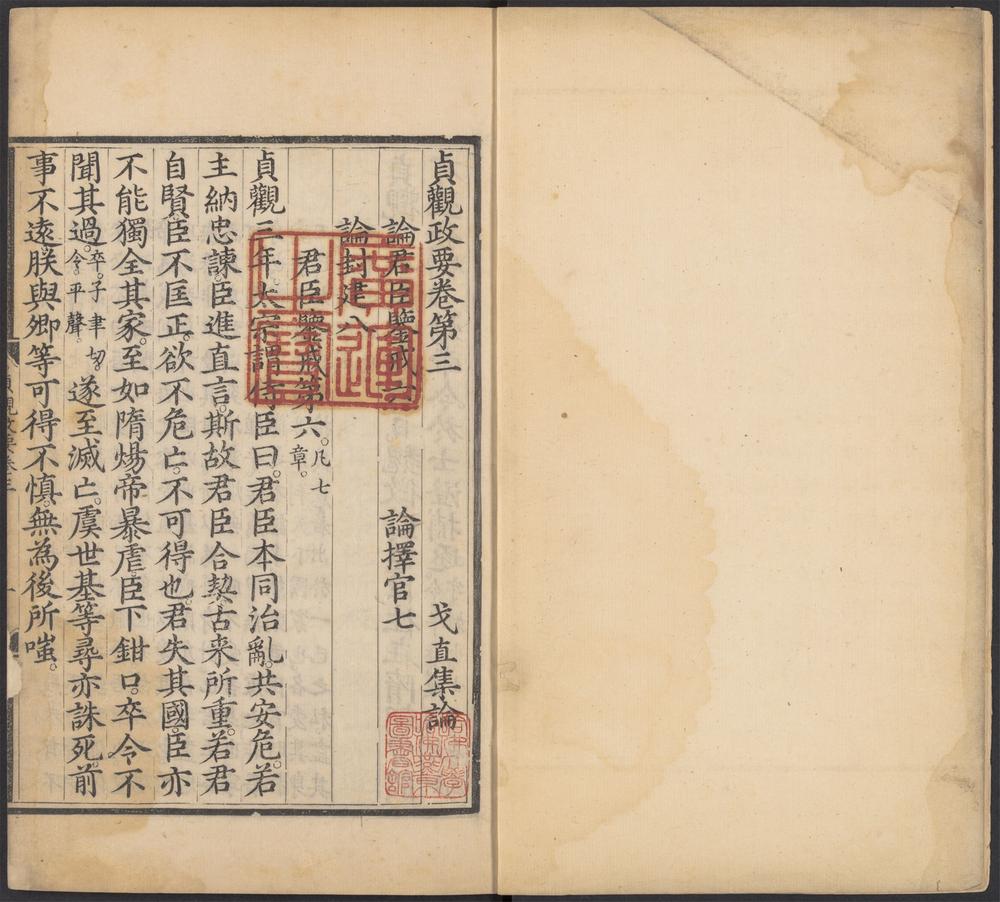 貞觀政要卷第三 戈直集論
論君臣鑒戒六 論擇官七
論封建八
君臣鑒戒第六。凡七章。
貞觀三年。太宗謂侍臣曰。君臣本同治亂。共安危。若
主納忠諫。臣進直言。斯故君臣合契。古来所重。若君
自賢。臣不匡正。欲不危亡。不可得也。君失其國。臣亦
不能獨全其家。至如隋煬帝暴虐。臣下鉗口。卒令不
聞其過。卒。子聿切。令。平聲。遂至滅亡。虞世基等。尋亦誅死。前
事不遠。朕與卿等可得不慎。無為後所嗤。
哈佛大學
哈佛燕京
圖書館